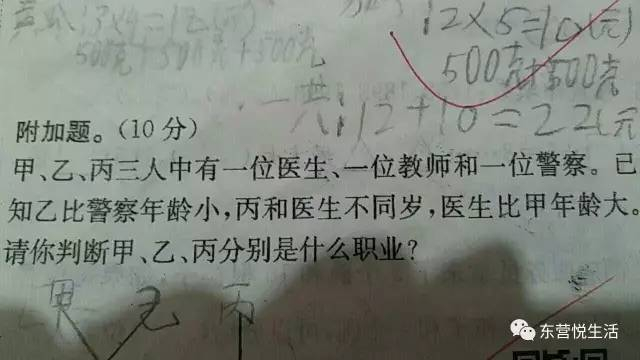 12×5=10(元)
500克+500克+500克
500克+500克
一共:12+10=22(元
附加题。(10分)
甲、乙、丙三人中有一位医生、一位教师和一位警察。已
知乙比警察年龄小,丙和医生不同岁,医生比甲年龄大。
请你判断甲、乙、丙分别是什么职业?
乙 丙
东营悦生活